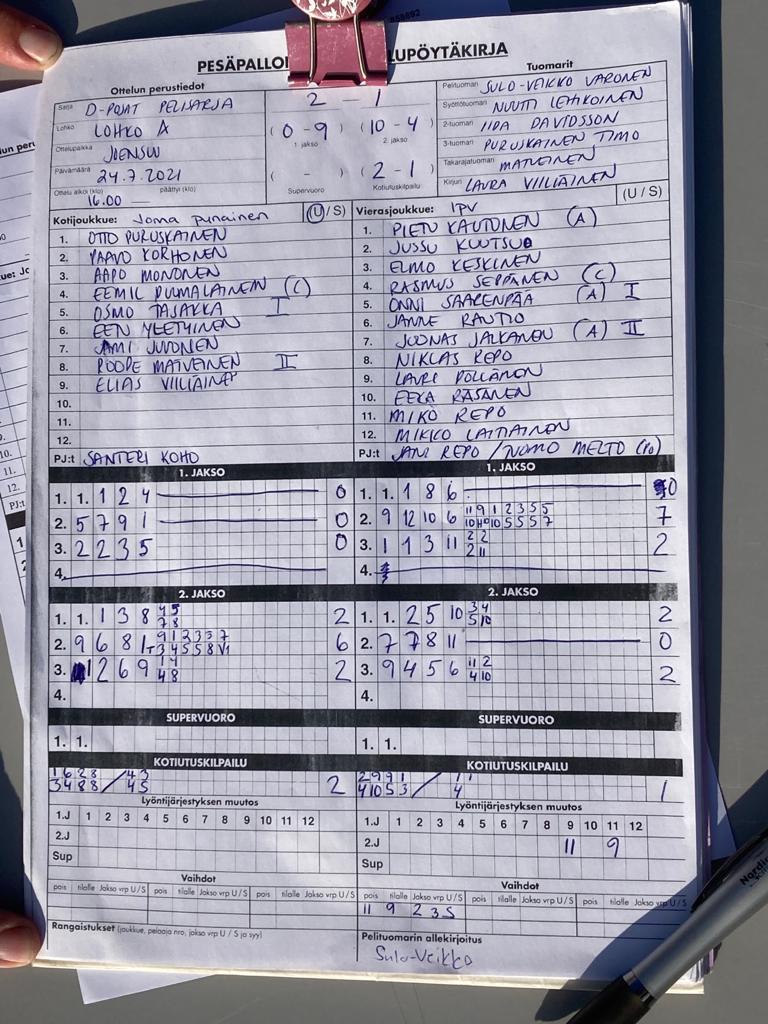 PESÄPALLO LUPÖYTÄKIRJA
Ottelun perustiedot
Sarja D-POJAT PELISARJA
Lohko LOHKO A
Ottelupaikka JOENSUU
Päivämäärä 24.7.2021
Ottelu alkoi (klo) päättyi (klo)
16.00
2 - 1
(0 - 9) (10 - 4)
1. jakso 2. jakso
( - ) (2 - 1)
Supervuoro Kotiutuskilpailu
Tuomarit
Pelituomari SULO-VEIKKO VARONEN
Syöttötuomari NUUTTI LEHIKOINEN
2-tuomari IIDA DAVIDSSON
3-tuomari PURUSKAINEN TIMO
Takarajatuomari MATVEINEN
Kirjuri LAURA VIILIÄINEN
Kotijoukkue: Joma punainen (U / S)
1. OTTO PURUSKAINEN
2. PAAVO KORHONEN
3. AAPO MONONEN
4. EEMIL PUUMALAINEN (C)
5. OSMO TASAKKA I
6. EEN YLETYINEN
7. JAMI JUVONEN
8. ROOPE MATVEINEN II
9. ELIAS VIILIÄINEN
10.
11.
12.
PJ:t SANTERI KOHO
Vierasjoukkue: IPV (U / S)
1. PIETU KAUTONEN (A)
2. JUSSU KUUTSU
3. ELMO KESKINEN
4. RASMUS SEPPÄNEN (C)
5. ONNI SAARENPÄÄ (A) I
6. JANNE RAUTIO
7. JOONAS JALKANEN (A) II
8. NIKLAS REPO
9. LAURI PÖLLÄNEN
10. EEKA RÄSÄNEN
11. MIKO REPO
12. MIKKO LAITIAINEN
PJ:t JANI REPO / JUOMO MELTO (PO)
1. JAKSO
1. 1. 1 2 4 0
2. 5 7 9 1 0
3. 2 2 3 5 0
4.
1. JAKSO
1. 1. 1 8 6 0
2. 9 12 10 6 11 9 1 2 3 5 5 7
10 11 9 10 5 5 5 7
3. 1 1 3 11 2 2 2
2 11
4.
2. JAKSO
1. 1. 1 3 8 4 5 2
7 8
2. 9 6 8 1 T 9 1 2 3 3 7 6
3 4 5 5 8 V1
3. 1 2 6 9 1 4 2
4 8
4.
2. JAKSO
1. 1. 2 5 10 3 4 2
5 10
2. 7 7 8 11 0
3. 9 4 5 6 11 2 2
4 10
4.
SUPERVUORO
1. 1.
SUPERVUORO
1. 1.
KOTIUTUSKILPAILU
1 6 2 8 / 4 3 2
3 4 8 8 4 5
KOTIUTUSKILPAILU
2 9 9 1 / 1 1 1
4 10 5 3 4
Lyöntijärjestyksen muutos
1.J 1 2 3 4 5 6 7 8 9 10 11 12
2.J
Sup
Lyöntijärjestyksen muutos
1.J 1 2 3 4 5 6 7 8 9 10 11 12
2.J 11 9
Sup
Vaihdot
pois tilalle Jakso vrp U / S pois tilalle Jakso vrp U / S pois tilalle Jakso vrp U / S
Vaihdot
pois tilalle Jakso vrp U / S pois tilalle Jakso vrp U / S pois tilalle Jakso vrp U / S
11 9 2 3 S
Rangaistukset (joukkue, pelaaja nro, jakso vrp U / S ja syy)
Pelituomarin allekirjoitus
Sulo-Veikko